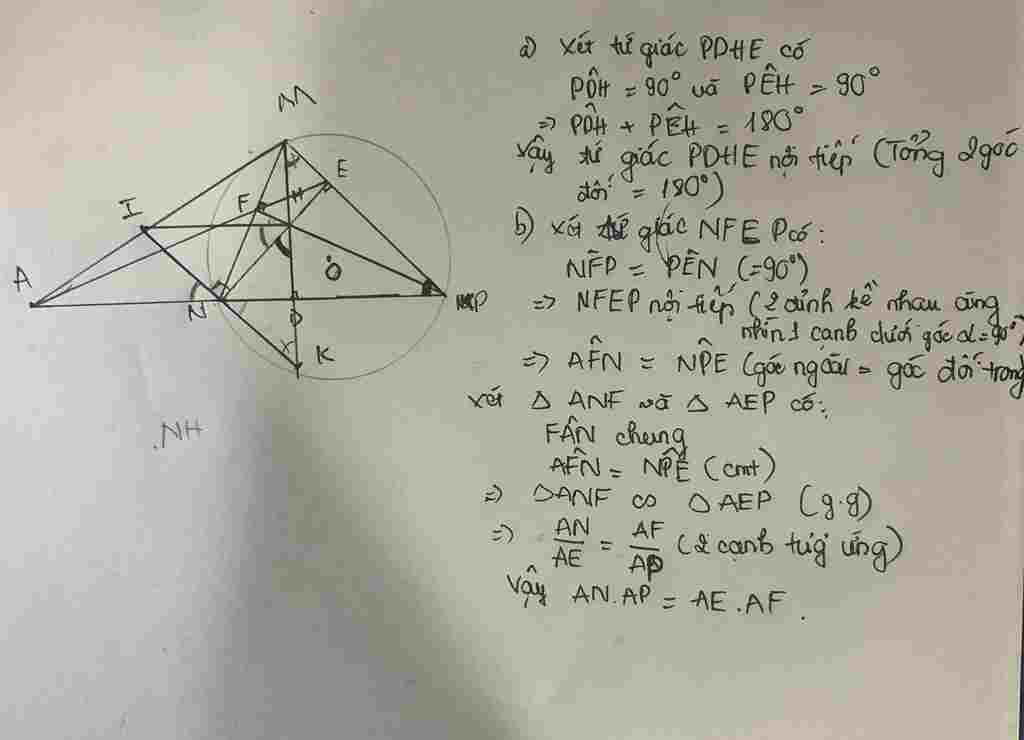 M
E
I
F
H
A
Ô
N
D
P
K
.NH
a) Xét tứ giác PDHE có
PD̂H = 90° và PÊH = 90°
=> PD̂H + PÊH = 180°
Vậy tứ giác PDHE nội tiếp (Tổng 2 góc
đối = 180°)
b) Xét tứ giác NFEP có:
NF̂P = PÊN (=90°)
=> NFEP nội tiếp (2 đỉnh kề nhau cùng
nhìn 1 cạnh dưới góc α = 90°)
=> AF̂N = NP̂E (góc ngoài = góc đối trong)
Xét Δ ANF và Δ AEP có:
FÂN chung
AF̂N = NP̂E (cmt)
=> ΔANF ∽ ΔAEP (g.g)
=> AN/AE = AF/AP (2 cạnh tứg ứng)
Vậy AN.AP = AE.AF.